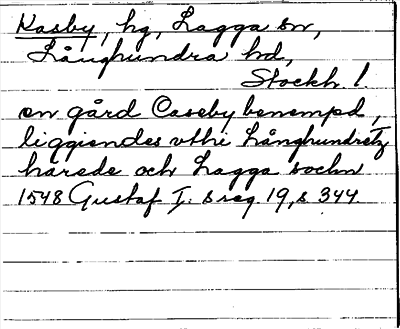 Kasby, hg, Lagga sn,
Långhundra hd,
Stockh. l.
en gård Caseby benempd,
liggiendes vthi Långhundretz
härede och Lagga sochn
1548 Gustaf I:s reg. 19, s 344.